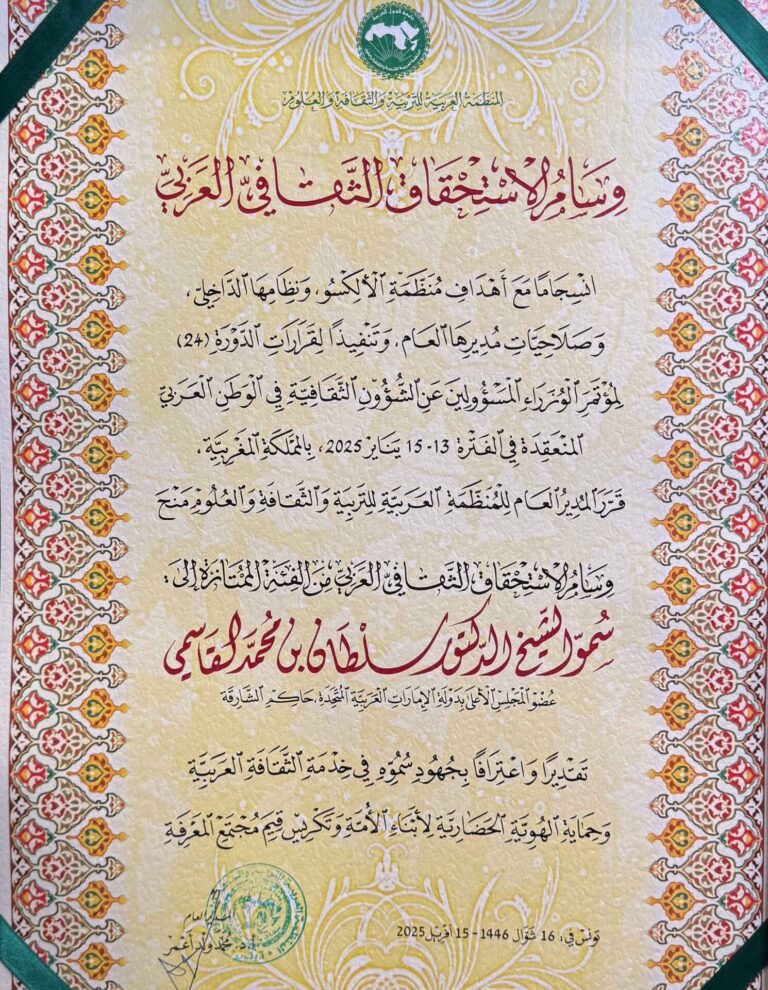 المنظمة العربية للتربية والثقافة والعلوم
وِسَامُ الِاسْتِحْقَاقِ الثَّقَافِيِّ العَرَبِيِّ
انْسِجَامًا مَعَ أَهْدَافِ مُنَظَّمَةِ الْأَلِكْسُو، وَنِظَامِهَا الدَّاخِلِيِّ،
وَصَلَاحِيَّاتِ مُدِيرِهَا العَام، وَتَنْفِيذًا لِقَرَارَاتِ الدَّوْرَةِ (24)
لِمُؤْتَمَرِ الْوُزَرَاءِ الْمَسْؤُولِينَ عَنِ الشُّؤُونِ الثَّقَافِيَّةِ فِي الْوَطَنِ الْعَرَبِيِّ
الْمُنْعَقِدَةِ فِي الْفَتْرَةِ 13-15 يَنَايِرْ 2025، بِالْمَمْلَكَةِ الْمَغْرِبِيَّةِ،
قَرَّرَ الْمُدِيرُ الْعَام لِلْمُنَظَّمَةِ الْعَرَبِيَّةِ لِلتَّرْبِيَةِ وَالثَّقَافَةِ وَالْعُلُومِ مَنْحَ
وِسَامُ الِاسْتِحْقَاقِ الثَّقَافِيِّ الْعَرَبِيِّ مِنَ الْفِئَةِ الْمُمْتَازَةِ إِلَى:
سُمُوِّ الشَّيْخِ الدُّكْتُورِ سُلْطَان بْن مُحَمَّد الْقَاسِمِي
عُضْوِ الْمَجْلِسِ الْأَعْلَى بِدَوْلَةِ الْإِمَارَاتِ الْعَرَبِيَّةِ الْمُتَّحِدَةِ، حَاكِمِ الشَّارِقَة
تَقْدِيرًا وَاعْتِرَافًا بِجُهُودِ سُمُوِّهِ فِي خِدْمَةِ الثَّقَافَةِ الْعَرَبِيَّةِ
وَحِمَايَةِ الْهُوِيَّةِ الْحَضَارِيَّةِ لِأَبْنَاءِ الْأُمَّةِ وَتَكْرِيسِ قِيَمِ مُجْتَمَعِ الْمَعْرِفَةِ
المدير العام
أ.د. محمد ولد أعمر
تونس في: 16 شوال 1446 - 15 أفريل 2025